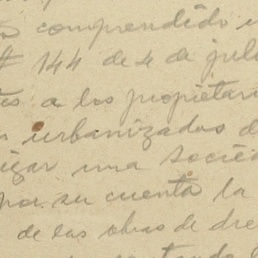 comprendido
144 de 4 de julio
a los propietari
urbanizados d
una socied
por su cuenta la
de las obras de dre